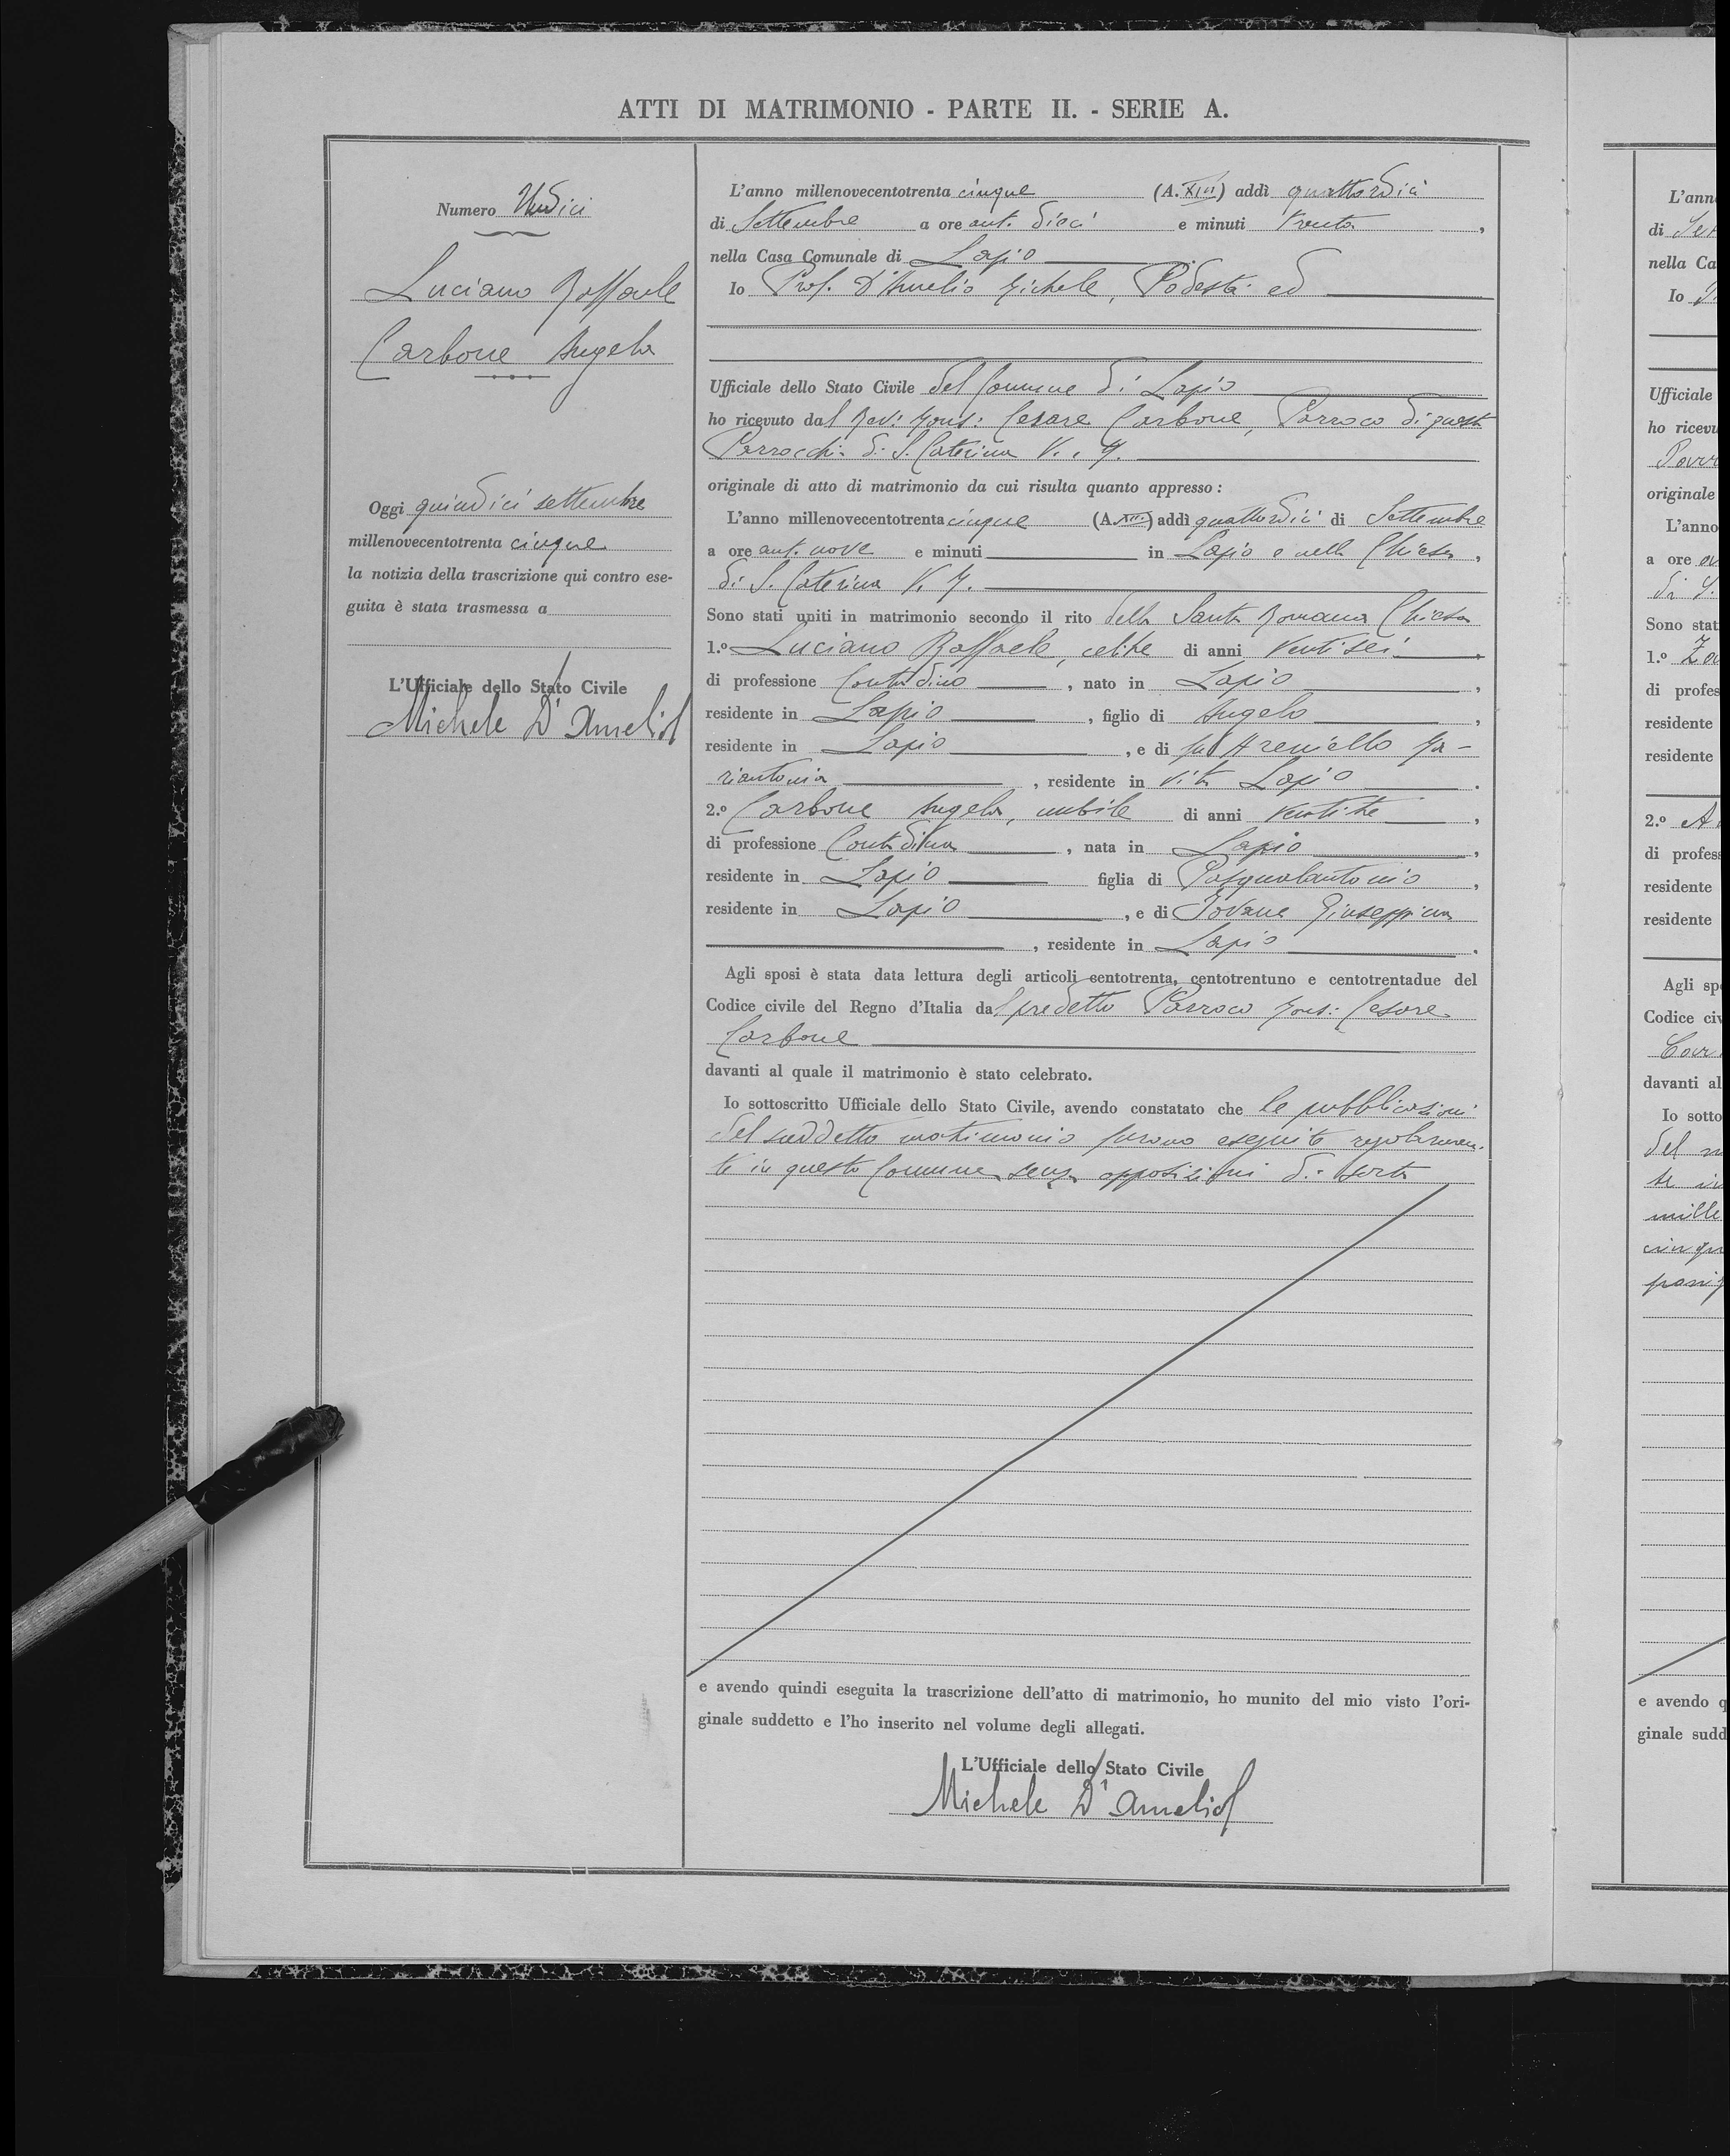 ATTI DI MATRIMONIO - PARTE II. - SERIE A.
Numero Undici
Luciano Raffaele
Carbone Angela
Oggi quindici settembre
millenovecentotrenta cinque
la notizia della trascrizione qui contro ese-
guita è stata trasmessa a
L'Ufficiale dello Stato Civile
Michele D'Amelio
L'anno millenovecentotrenta cinque (A. XIII) addì quattordici
di Settembre a ore ant. dieci e minuti trenta,
nella Casa Comunale di Lapio
Io Prof. D'Amelio Michele, Podestà ed
Ufficiale dello Stato Civile del Comune di Lapio
ho ricevuto dal Rev: Mons: Cesare Carbone, Parroco di questa
Parrocchia di S. Caterina V. e M.
originale di atto di matrimonio da cui risulta quanto appresso:
L'anno millenovecentotrenta cinque (A. XIII) addì quattordici di Settembre
a ore ant. nove e minuti in Lapio e nella Chiesa,
di S. Caterina V. M.
Sono stati uniti in matrimonio secondo il rito della Santa Romana Chiesa
1.º Luciano Raffaele, celibe di anni ventisei,
di professione Contadino, nato in Lapio,
residente in Lapio, figlio di Angelo,
residente in Lapio, e di fu Areniello Ma-
riantonia, residente in vita Lapio.
2.º Carbone Angela, nubile di anni ventitre,
di professione Contadina, nata in Lapio,
residente in Lapio figlia di Pasqualantonio,
residente in Lapio, e di Iovane Giuseppina
, residente in Lapio.
Agli sposi è stata data lettura degli articoli centotrenta, centotrentuno e centotrentadue del
Codice civile del Regno d'Italia dal predetto Parroco Mons: Cesare
Carbone
davanti al quale il matrimonio è stato celebrato.
Io sottoscritto Ufficiale dello Stato Civile, avendo constatato che le pubblicazioni
del suddetto matrimonio furono eseguite regolarmen-
te in questo Comune senza opposizioni di sorta
e avendo quindi eseguita la trascrizione dell'atto di matrimonio, ho munito del mio visto l'ori-
ginale suddetto e l'ho inserito nel volume degli allegati.
L'Ufficiale dello Stato Civile
Michele D'Amelio
L'ann
di Set
nella Ca
Io
Ufficiale
ho ricevu
Parr
originale
L'anno
a ore
di S.
Sono stat
1.º
di profes
residente
residente
2.º
di profess
residente
residente
Agli spo
Codice civ
davanti al
Io sotto
del m
te in
mille
cinqu
e avendo q
ginale sudd